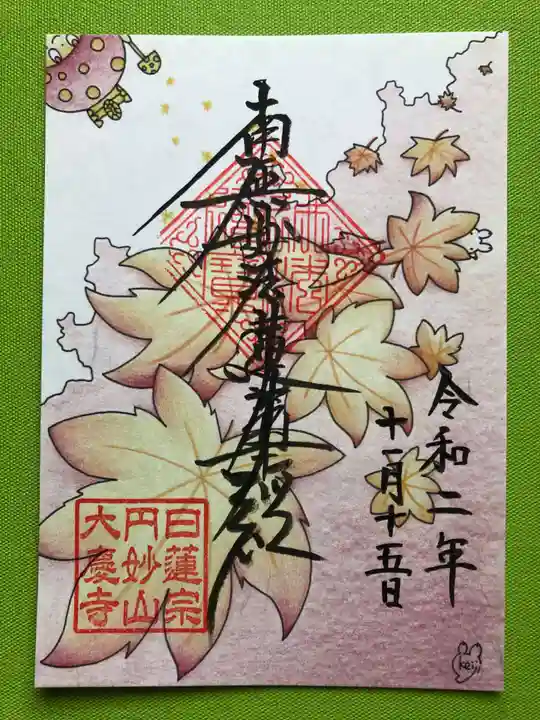 南無妙法蓮華經
令和二年
十一月十五日
日蓮宗
円妙山
大慶寺
keiji